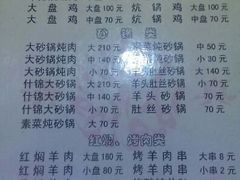 大盘鸡 大盘100元 炕锅鸡 大盘100元
小盘70元 小盘70元
砂锅类
大砂锅炖肉 大210元 素菜炖砂锅 中50元
大砂锅炖肉 中140元 小30元
大砂锅炖肉 小70元 羊肚丝砂锅 中140元
什锦大砂锅 大210元 羊头肚丝砂锅 小70元
什锦大砂锅 中140元 羊头砂锅 小70元
什锦大砂锅 小70元 肚丝砂锅 70元
素菜炖砂锅 大70元
红焖、烤肉类
红焖羊肉 大盘180元 烤羊肉串 大串8元
红焖羊肉 小盘80元 烤羊肉串 小串2元